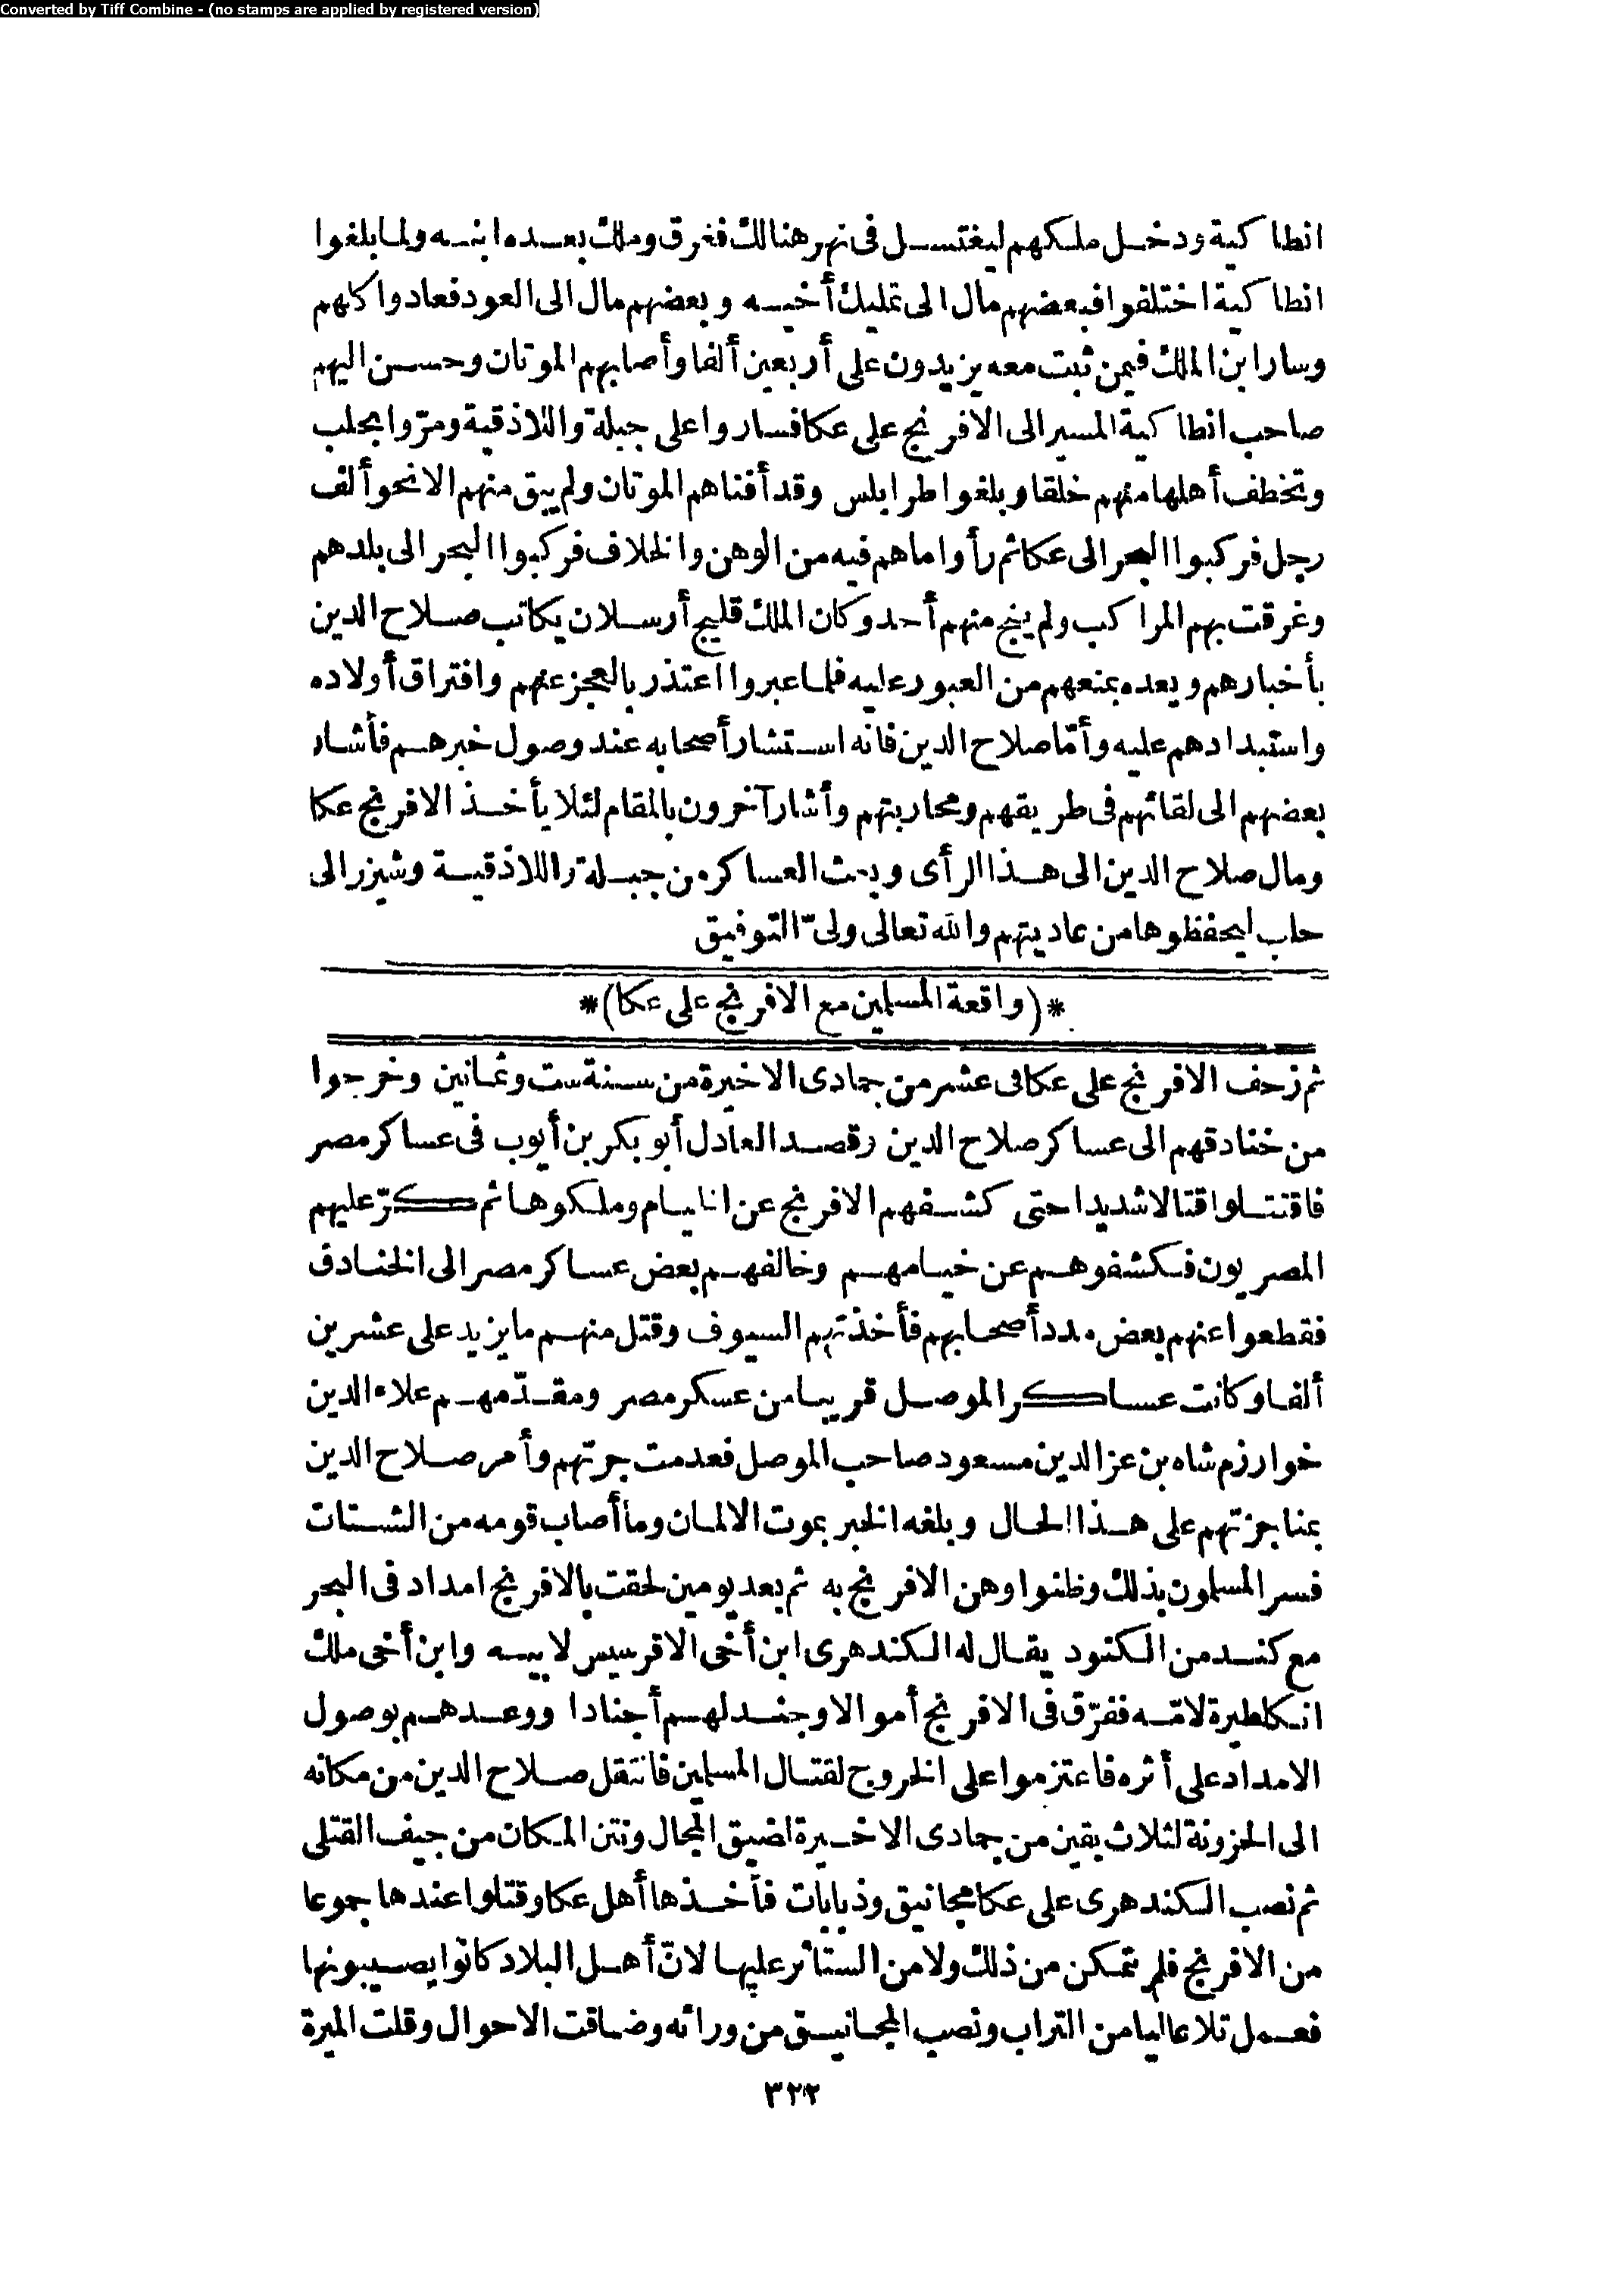 Converted by Tiff Combine - (no stamps are applied by registered version)
انطاكية ودخل ملكهم ليغتسل فى نهر هنالك فغرق وملك بعده ابنه ولما بلغوا
انطاكية اختلفوا فبعضهم مال الى تمليك أخيه وبعضهم مال الى العود فعادوا كلهم
وسار ابن الملك فيمن ثبت معه يزيدون على أربعين ألفا وأصابهم الموتان وحسن اليهم
صاحب انطاكية المسير الى الافرنج على عكا فساروا على جبلة واللاذقية ومرّوا بحلب
وتخطف أهلها منهم خلقا وبلغوا طرابلس وقد أفناهم الموتان ولم يبق منهم الا نحو ألف
رجل فركبوا البحر الى عكا ثم رأوا ما هم فيه من الوهن والخلاف فركبوا البحر الى بلدهم
وغرقت بهم المراكب ولم ينج منهم أحد وكان الملك قليج أرسلان يكاتب صلاح الدين
بأخبارهم ويعده بمنعهم من العبور عليه فلما عبروا اعتذر بالعجز عنهم وافتراق أولاده
واستبدادهم عليه وأمّا صلاح الدين فانه استشار أصحابه عند وصول خبرهم فأشار
بعضهم الى لقائهم فى طريقهم ومحاربتهم وأشار آخرون بالمقام لئلا يأخذ الافرنج عكا
ومال صلاح الدين الى هذا الرأى وبعث العساكر من جبلة واللاذقية وشيزر الى
حلب ليحفظوها من عاديتهم والله تعالى ولىّ التوفيق
*(واقعة المسلمين مع الافرنج على عكا)*
ثم زحف الافرنج على عكا فى عشر من جمادى الاخيرة من سنة ست وثمانين وخرجوا
من خنادقهم الى عساكر صلاح الدين وقصد العادل أبو بكر بن أيوب فى عساكر مصر
فاقتتلوا قتالا شديدا حتى كشفهم الافرنج عن الخيام وملكوها ثم كرّ عليهم
المصريون فكشفوهم عن خيامهم وخالفهم بعض عساكر مصر الى الخنادق
فقطعوا عنهم بعض مدد أصحابهم فأخذتهم السيوف وقتل منهم ما يزيد على عشرين
ألفا وكانت عساكر الموصل قريبا من عسكر مصر ومقدّمهم علاء الدين
خوارزم شاه بن عز الدين مسعود صاحب الموصل فعدمت جرتهم وأمر صلاح الدين
بمناجزتهم على هذا الحال وبلغه الخبر بموت الالمان وما أصاب قومه من الشتات
فسر المسلمون بذلك وظنوا وهن الافرنج به ثم بعد يومين لحقت بالافرنج امداد فى البحر
مع كند من الكنود يقال له الكندهرى ابن أخى الافرسيس لابيه وابن أخى ملك
انكلطيرة لامّه ففرّق فى الافرنج أموالا وجند لهم أجنادا ووعدهم بوصول
الامداد على أثره فاعتزموا على الخروج لقتال المسلمين فانتقل صلاح الدين من مكانه
الى الحزونة لثلاث بقين من جمادى الاخيرة لضيق المجال ونتن المكان من جيف القتلى
ثم نصب الكندهرى على عكا مجانيق وذبابات فأخذها أهل عكا وقتلوا عندها جموعا
من الافرنج فلم تمكن من ذلك ولا من الستائر عليها لانّ أهل البلاد كانوا يصيبونها
فعمل تلا عاليا من التراب ونصب المجانيق من ورائه وضاقت الاحوال وقلت الميرة
٣٢٢